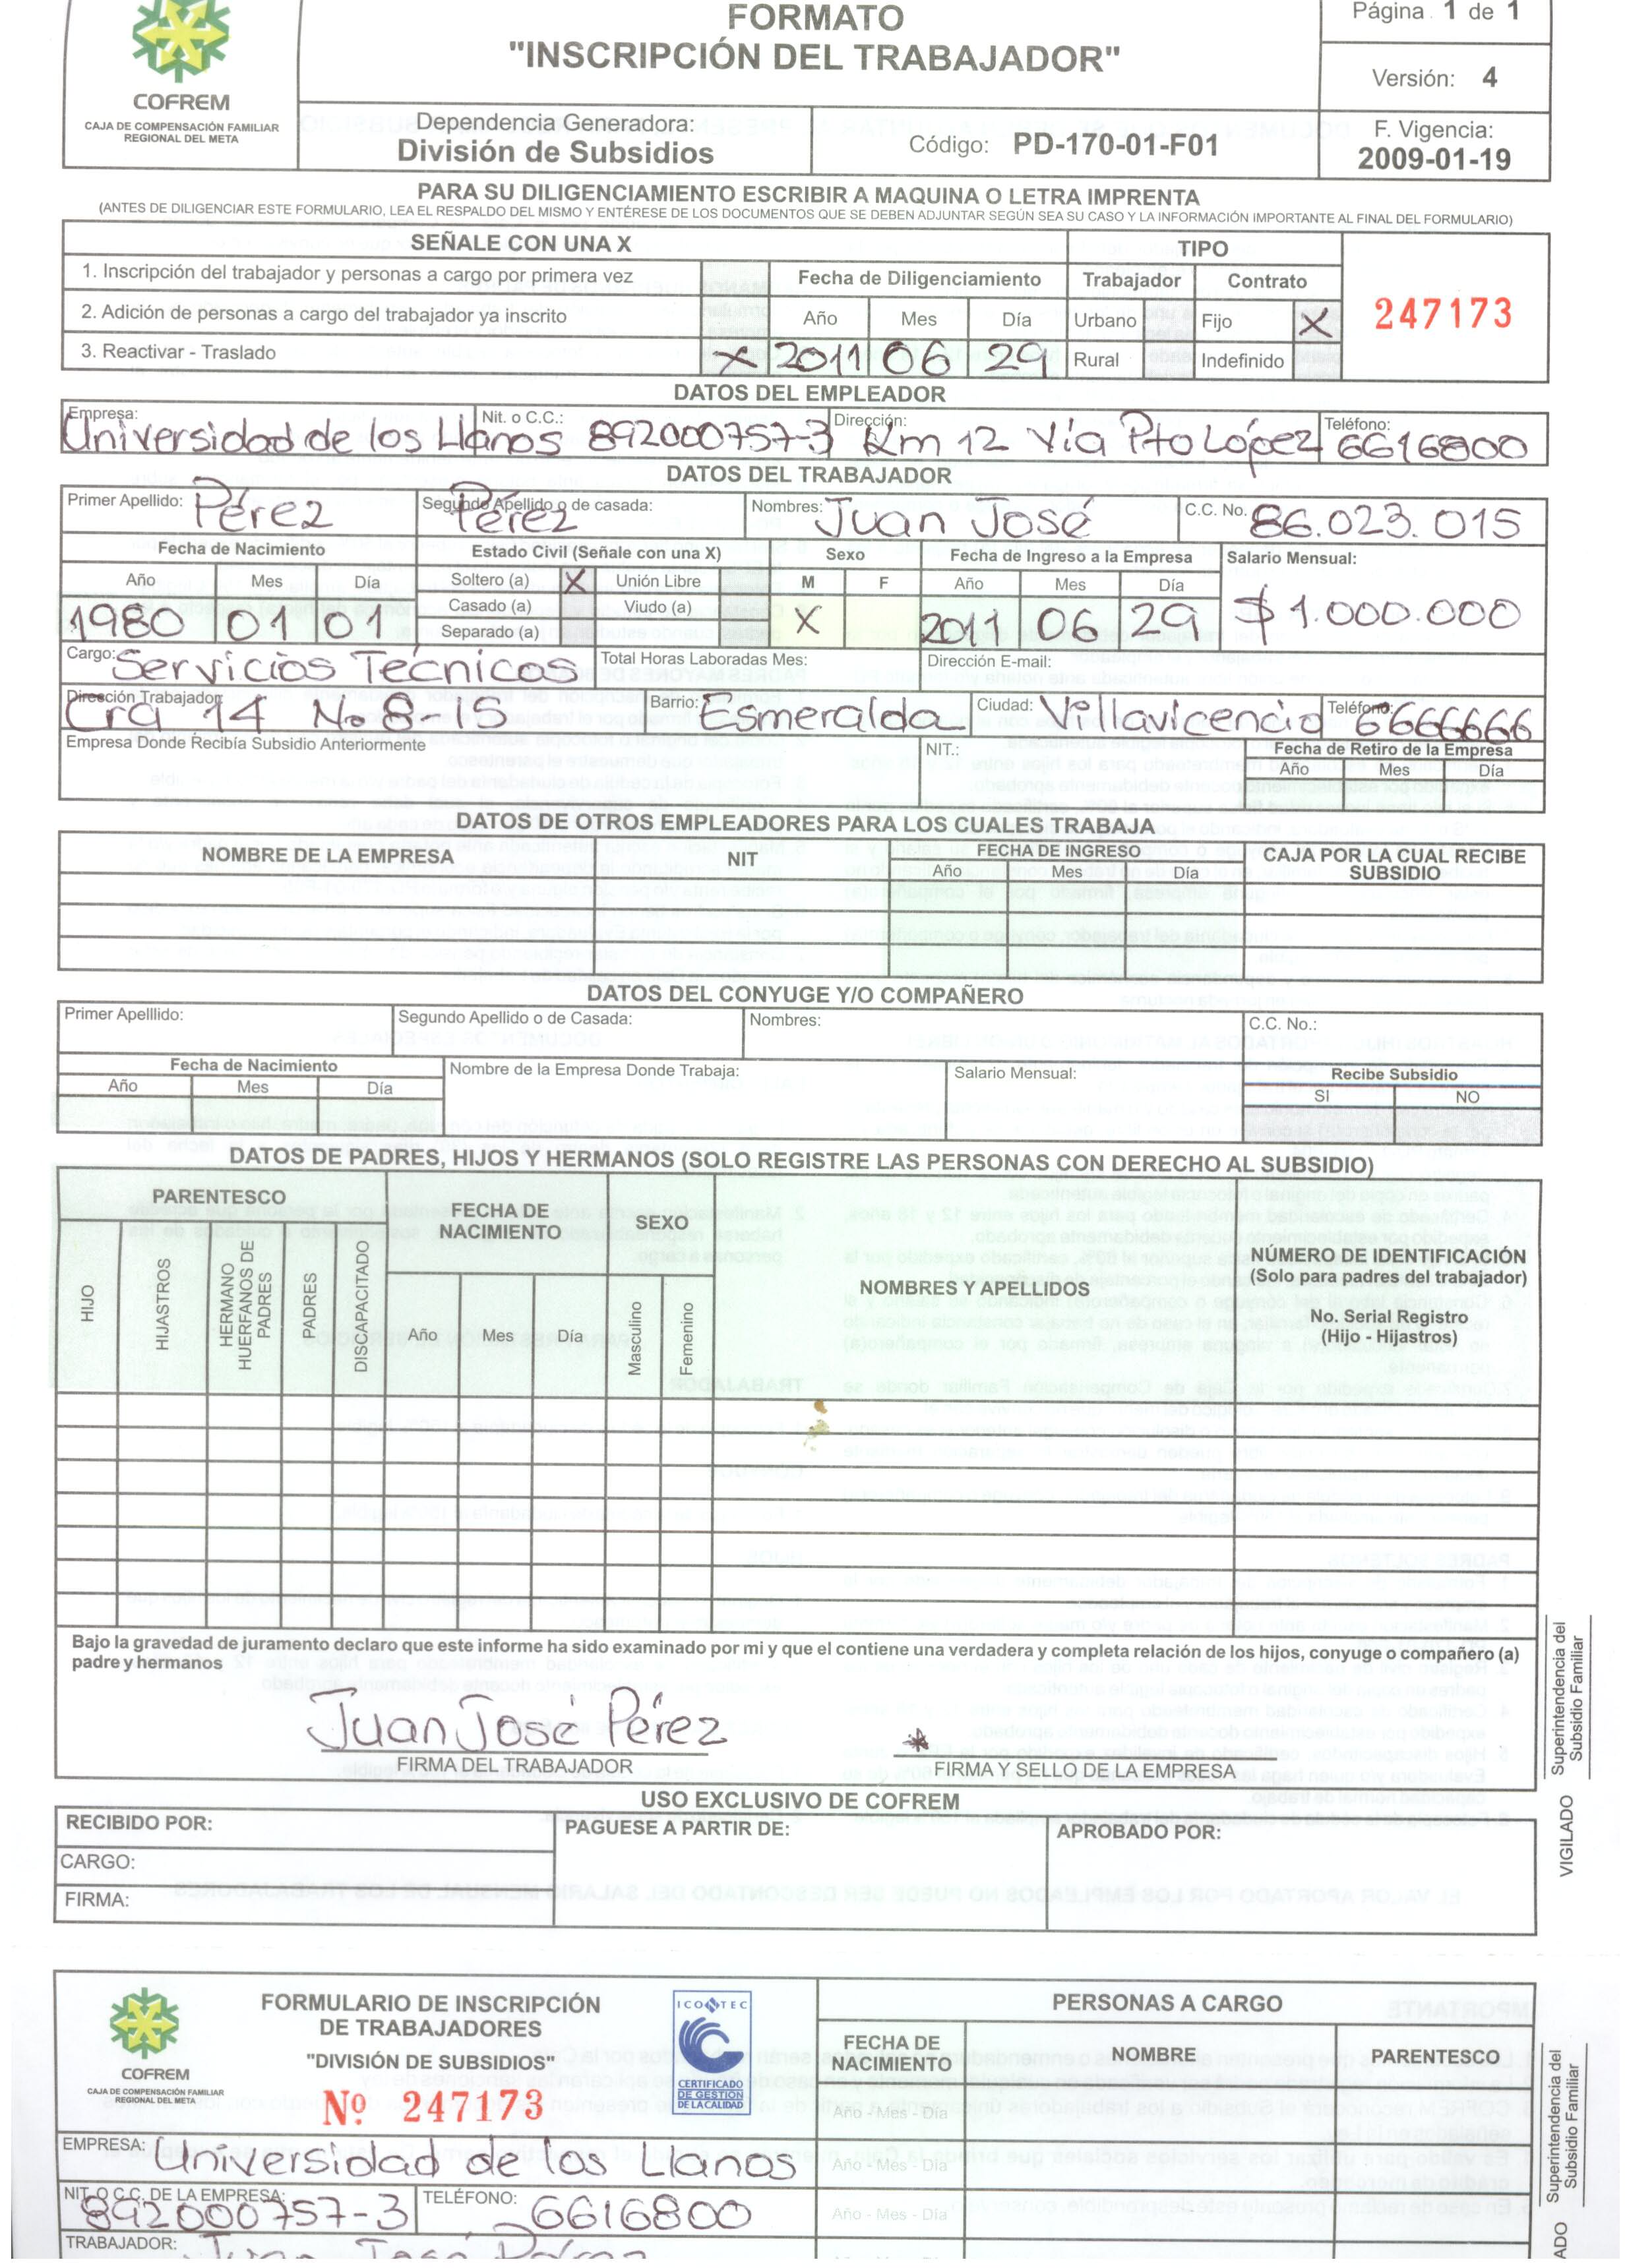 FORMATO
"INSCRIPCIÓN DEL TRABAJADOR"
Página 1 de 1
Versión: 4
COFREM
CAJA DE COMPENSACIÓN FAMILIAR
REGIONAL DEL META
Dependencia Generadora:
División de Subsidios
Código: PD-170-01-F01
F. Vigencia:
2009-01-19
PARA SU DILIGENCIAMIENTO ESCRIBIR A MAQUINA O LETRA IMPRENTA
(ANTES DE DILIGENCIAR ESTE FORMULARIO, LEA EL RESPALDO DEL MISMO Y ENTÉRESE DE LOS DOCUMENTOS QUE SE DEBEN ADJUNTAR SEGÚN SEA SU CASO Y LA INFORMACIÓN IMPORTANTE AL FINAL DEL FORMULARIO)
SEÑALE CON UNA X TIPO
1. Inscripción del trabajador y personas a cargo por primera vez Fecha de Diligenciamiento Trabajador Contrato
2. Adición de personas a cargo del trabajador ya inscrito Año Mes Día Urbano Fijo X 247173
3. Reactivar - Traslado X 2011 06 29 Rural Indefinido
DATOS DEL EMPLEADOR
Empresa: Nit. o C.C.: Dirección: Teléfono:
Universidad de los Llanos 892000757-3 Km 12 Vía Pto López 6616800
DATOS DEL TRABAJADOR
Primer Apellido: Pérez Segundo Apellido o de casada: Pérez Nombres: Juan José C.C. No. 86.023.015
Fecha de Nacimiento Estado Civil (Señale con una X) Sexo Fecha de Ingreso a la Empresa Salario Mensual:
Año Mes Día Soltero (a) X Unión Libre M F Año Mes Día
1980 01 01 Casado (a) Viudo (a) X 2011 06 29 $ 1.000.000
Separado (a)
Cargo: Servicios Tecnicos Total Horas Laboradas Mes: Dirección E-mail:
Dirección Trabajador: Cra 14 No 8-15 Barrio: Esmeralda Ciudad: Villavicencio Teléfono: 6666666
Empresa Donde Recibía Subsidio Anteriormente NIT.: Fecha de Retiro de la Empresa
Año Mes Día
DATOS DE OTROS EMPLEADORES PARA LOS CUALES TRABAJA
NOMBRE DE LA EMPRESA NIT FECHA DE INGRESO CAJA POR LA CUAL RECIBE
Año Mes Día SUBSIDIO
DATOS DEL CONYUGE Y/O COMPAÑERO
Primer Apelllido: Segundo Apellido o de Casada: Nombres: C.C. No.:
Fecha de Nacimiento Nombre de la Empresa Donde Trabaja: Salario Mensual: Recibe Subsidio
Año Mes Día SI NO
DATOS DE PADRES, HIJOS Y HERMANOS (SOLO REGISTRE LAS PERSONAS CON DERECHO AL SUBSIDIO)
PARENTESCO FECHA DE NACIMIENTO SEXO
HIJO
HIJASTROS
HERMANO HUERFANOS DE PADRES
PADRES
DISCAPACITADO
Año Mes Día
Masculino
Femenino
NOMBRES Y APELLIDOS
NÚMERO DE IDENTIFICACIÓN
(Solo para padres del trabajador)
No. Serial Registro
(Hijo - Hijastros)
Bajo la gravedad de juramento declaro que este informe ha sido examinado por mi y que el contiene una verdadera y completa relación de los hijos, conyuge o compañero (a)
padre y hermanos
Juan José Pérez
FIRMA DEL TRABAJADOR FIRMA Y SELLO DE LA EMPRESA
Superintendencia del
Subsidio Familiar
VIGILADO
USO EXCLUSIVO DE COFREM
RECIBIDO POR: PAGUESE A PARTIR DE: APROBADO POR:
CARGO:
FIRMA:
COFREM
CAJA DE COMPENSACIÓN FAMILIAR
REGIONAL DEL META
FORMULARIO DE INSCRIPCIÓN
DE TRABAJADORES
"DIVISIÓN DE SUBSIDIOS"
Nº 247173
ICONTEC
CERTIFICADO
DE GESTIÓN
DE LA CALIDAD
PERSONAS A CARGO
FECHA DE NACIMIENTO NOMBRE PARENTESCO
Año - Mes - Día
EMPRESA: Universidad de los Llanos Año - Mes - Día
NIT O C.C. DE LA EMPRESA: 892000757-3 TELÉFONO: 6616800 Año - Mes - Día
TRABAJADOR: Juan José Pérez
Superintendencia del
Subsidio Familiar
ADO